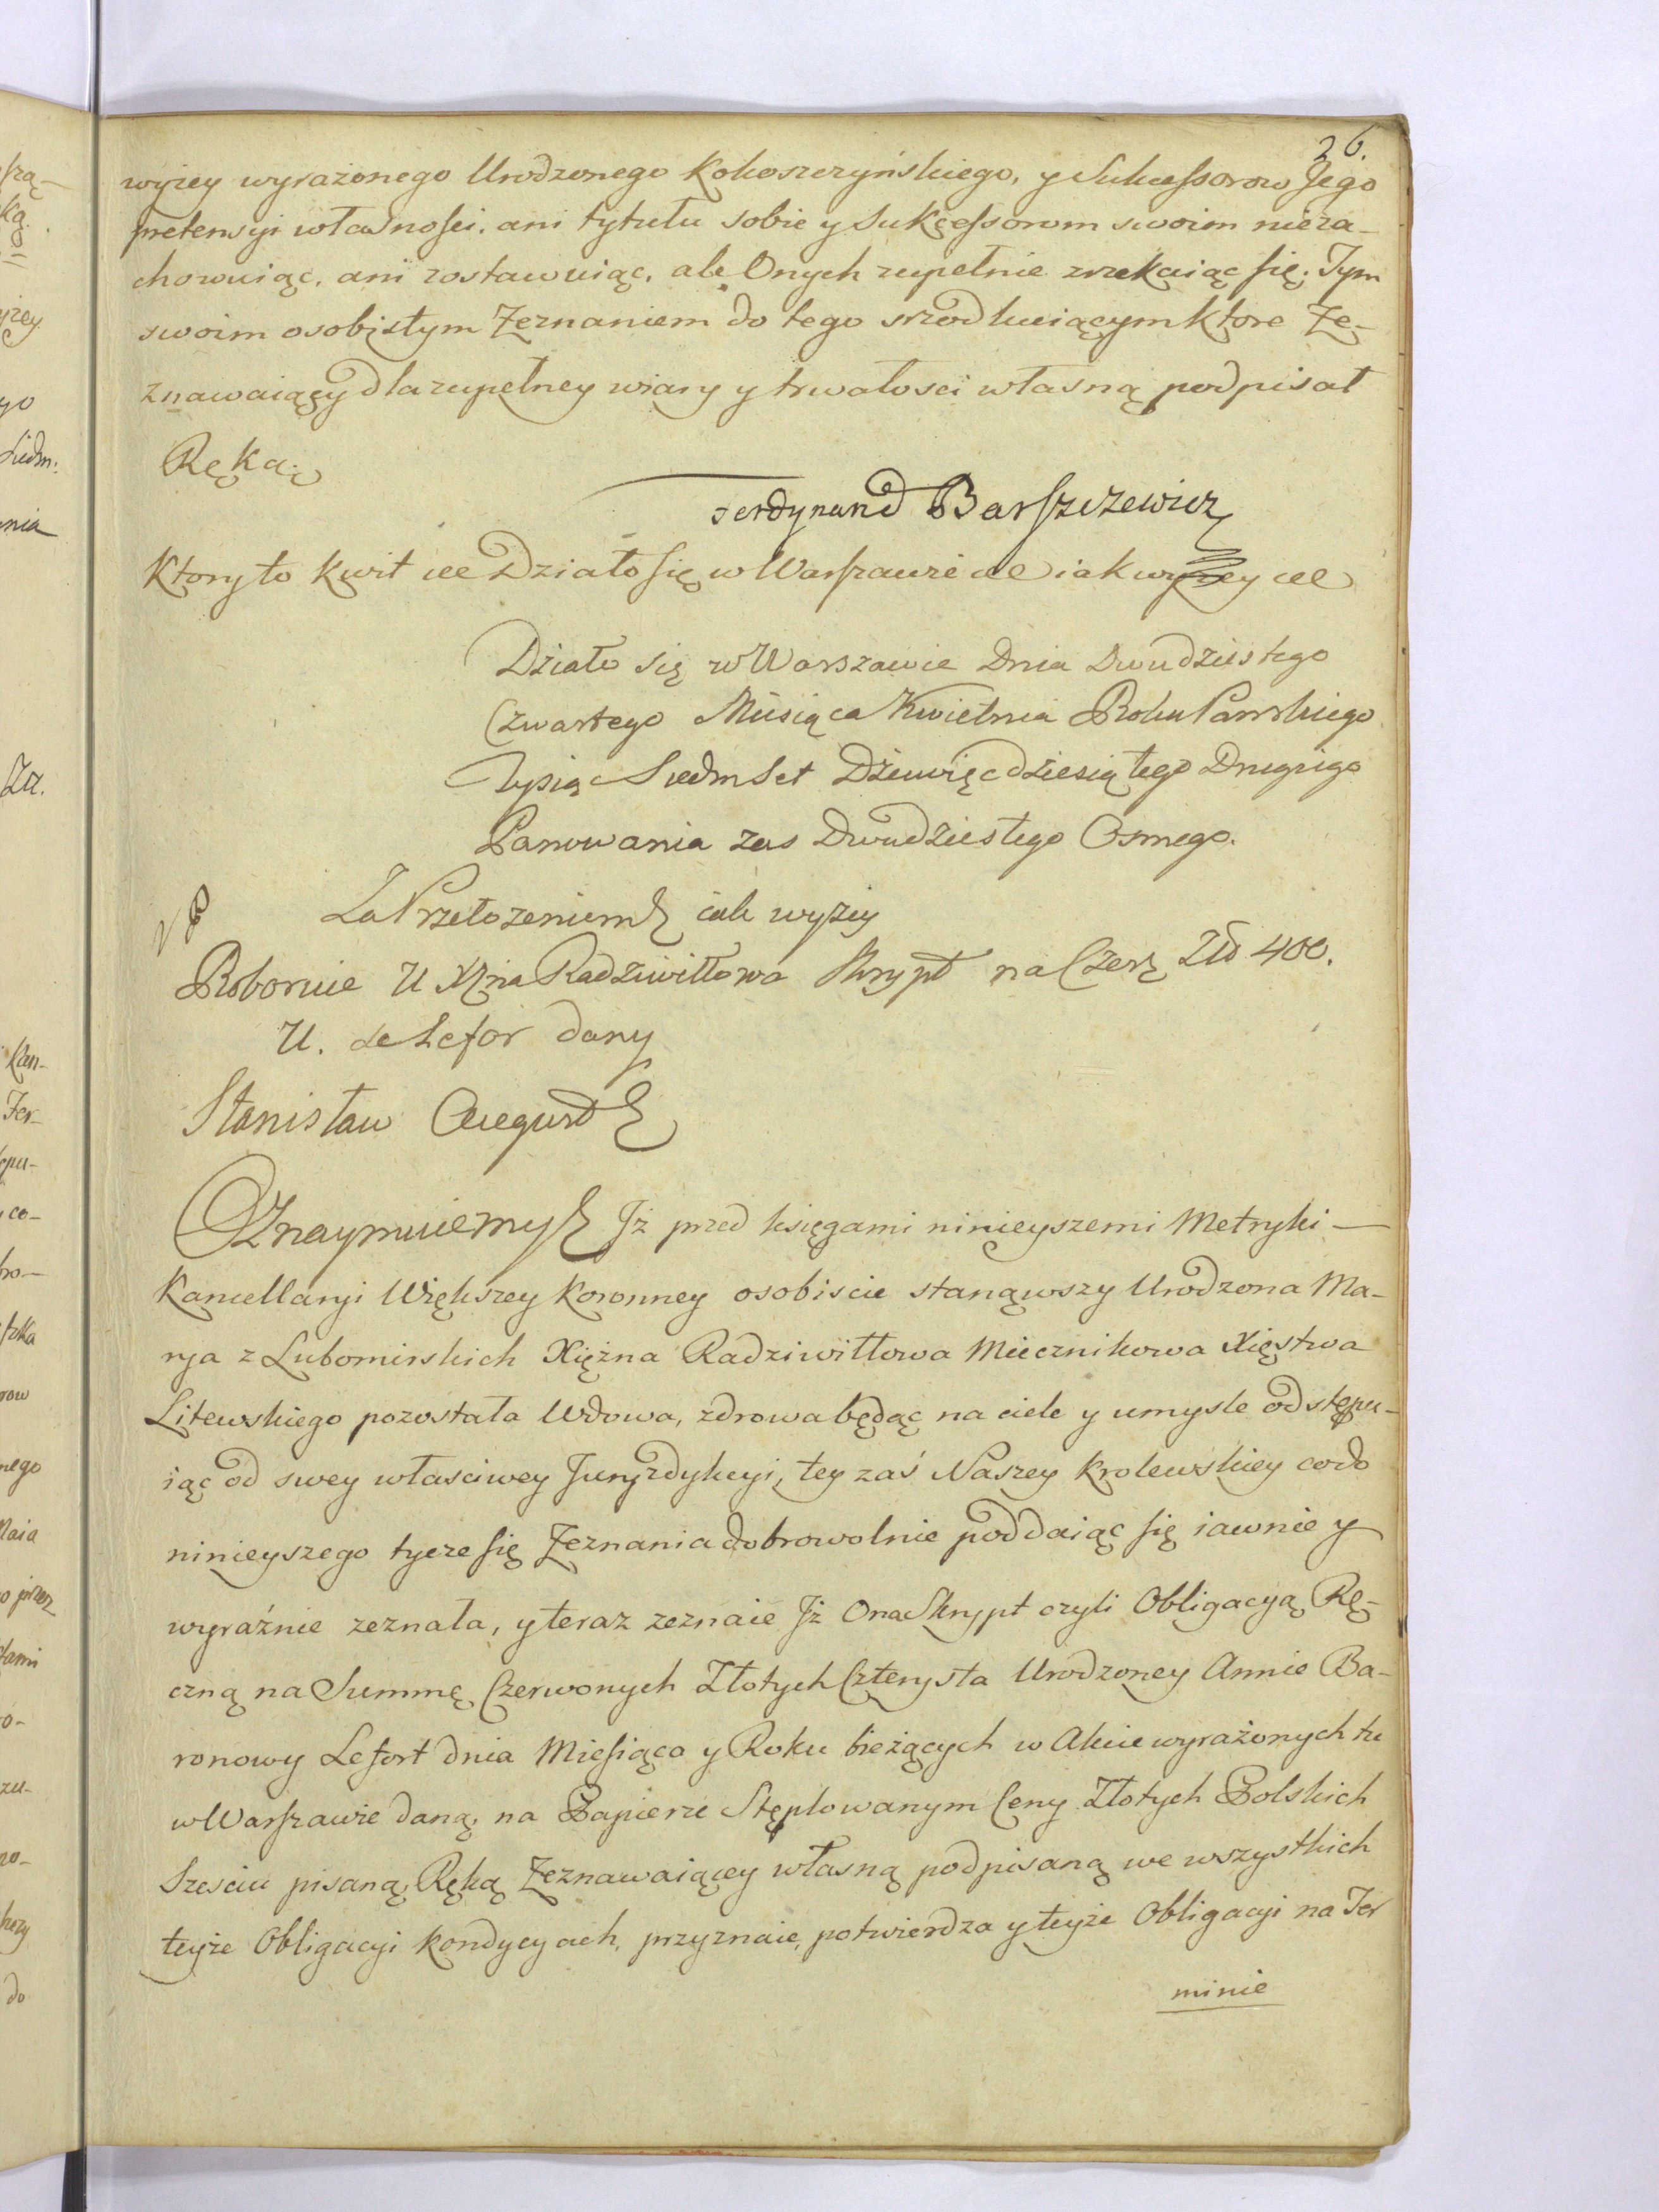 26.
wyżey wyrażonego Urodzonego Kokoszczyńskiego, y Sukcessorow Jego
pretensyi własności, ani tytułu sobie y Sukcessorom swoim nieza-
chowuiąc, ani zostawuiąc, ale Onych zupełnie zrzekaiąc się, Tym
swoim osobistym Zeznaniem do tego srzodkuiącym Ktore Ze-
znawaiący dla zupełney wiary y trwałosci własną podpisał
Ręką.
Ferdynand Barszczewicz
Ktory to Kwit etc Działo się w Warszawie etc iak wyzey etc
Działo się w Warszawie Dnia Dwudziestego
Czwartego Miesiąca Kwietnia Roku Panskiego
Tysiąc Siedmset Dziewięcdziesiątego Drugiego
Panowania zas Dwudziestego Osmego.
Za Przełozeniem iak wyzey
Roboruie U Xżna Radziwiłłowa Skrypt na Czer: Zło 400.
U. de Lefor dany
Stanisław August
Oznaymuiemy Jż przed księgami ninieyszemi Metryki
Kancellaryi Większey Koronney osobiscie stanąwszy Urodzona Ma-
rya z Lubomirskich Xiężna Radziwiłłowa Miecznikowa Xięstwa
Litewskiego pozostała Wdowa, zdrowa będąc na ciele y umysle odstępu-
iąc od swey własciwey Juryzdykcyi, tey zaś Naszey Krolewskiey codo
ninieyszego tycze się Zeznania dobrowolnie poddaiąc się iawnie y
wyraźnie zeznała, y teraz zeznaie Jż Ona Skrypt czyli Obligacyą Rę-
czną na Summę Czerwonych Złotych Czterysta Urodzoney Annie Ba-
ronowy Lefort dnia Miesiąca y Roku bieżących w Akcie wyrażonych tu
w Warszawie daną, na Papierze Stęplowanym Ceny Złotych Polskich
Szesciu pisaną, Ręką Zeznawaiącey własną podpisaną we wszystkich
teyże Obligacyi Kondycyach, przyznaie, potwierdza y teyże Obligacyi na Ter
minie